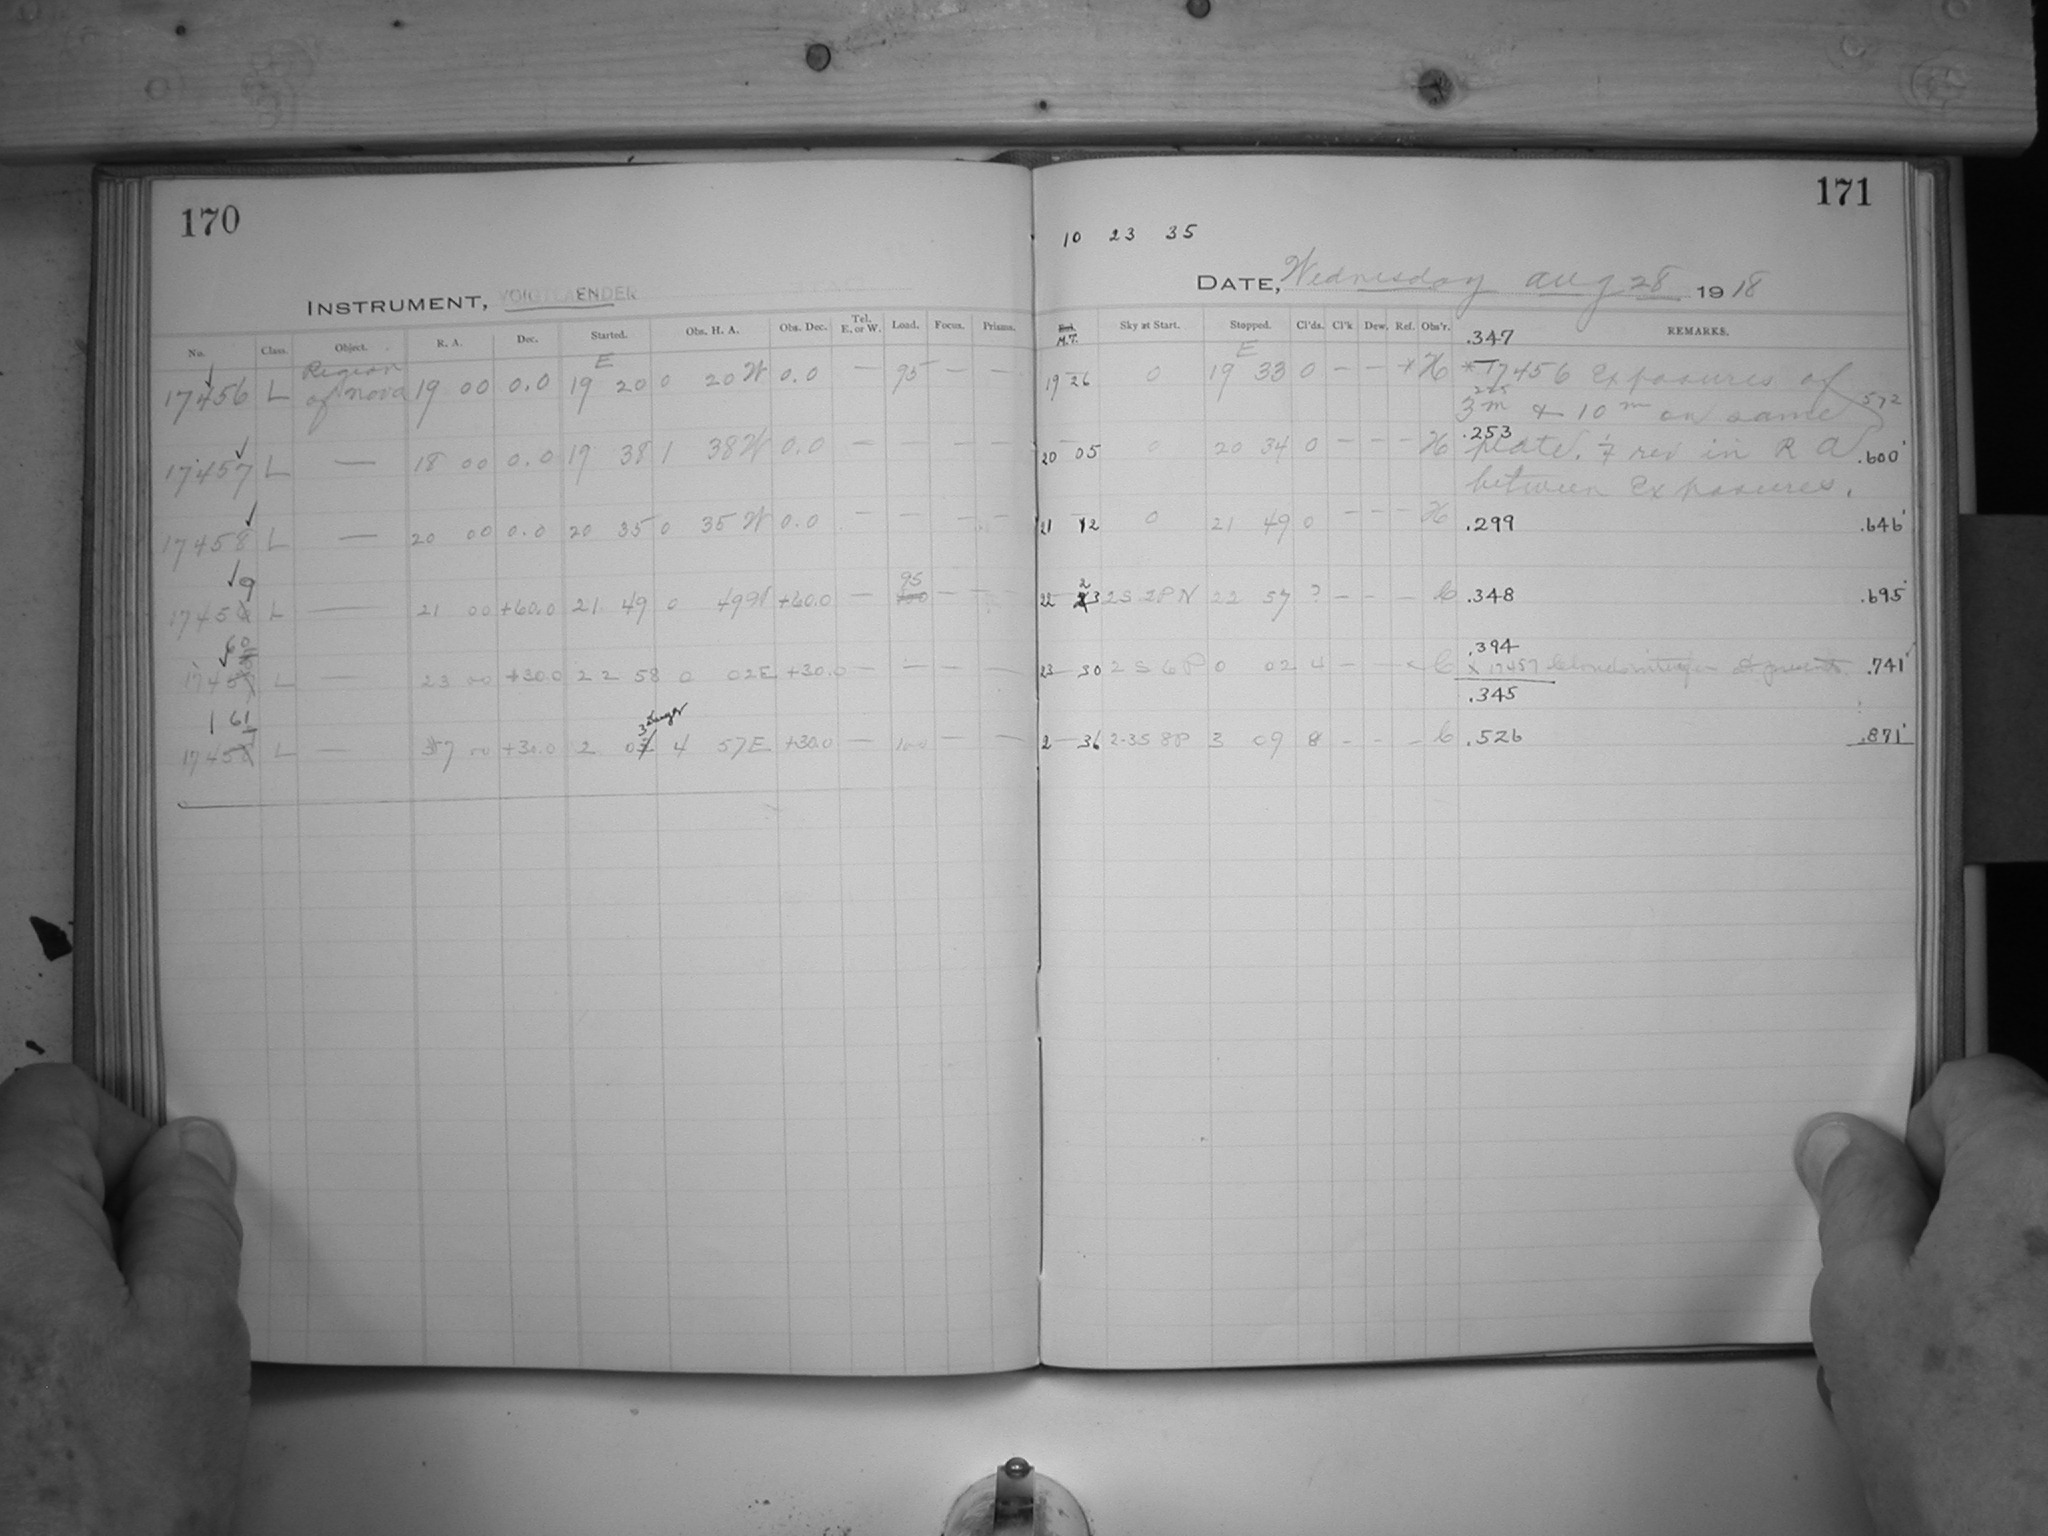 170
171
10 23 35
INSTRUMENT, VOIGTLAENDER
DATE, Wednesday Aug 28 1918
No. Class. Object. R. A. Dec. Started. Obs. H. A. Obs. Dec. Tel. E. or W. Load. Focus. Prisms. M.T. Sky at Start. Stopped. Cl'ds. Cl'k Dew. Ref. Obs'r. REMARKS.
.347
E E
17456 L Region of Nova 19 00 0.0 19 20 0 20 W 0.0 — 95 — — 19 26 0 19 33 0 — — * H * 17456 Exposures of
3m & 10m on same 572
.253
17457 L — 18 00 0.0 19 38 1 38 W 0.0 — — — — 20 05 0 20 34 0 — — — H plate. rev in R A .600
between Exposures.
17458 L — 20 00 0.0 20 35 0 35 W 0.0 — — — — 21 12 0 21 49 0 — — — H .299 .646
9
95
2
1745 L — 21 00 +60.0 21 49 0 49 W +60.0 — — — 22 3 2S 2P N 22 57 ? — — — C .348 .695
60
.394
1745 L — 23 00 +30.0 22 58 0 02 E +30.0 — — — — 23 30 2 S 6 P 0 02 4 — — × C × 17457 .741
.345
61
3
1745 L — 7 00 +30.0 2 0 4 57 E +30.0 — 100 — — 2 36 2-3S 8P 3 09 8 — — — C .526 .871